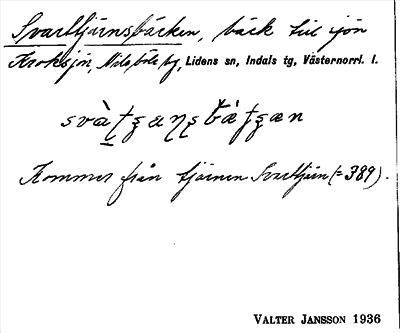 Svarttjärnsbäcken, bäck till sjön
Kroksjön, Lidens sn, Indals tg, Västernorrl. l.
Kommer från tjärnen Svarttjärn (= 389).
VALTER JANSSON 1936